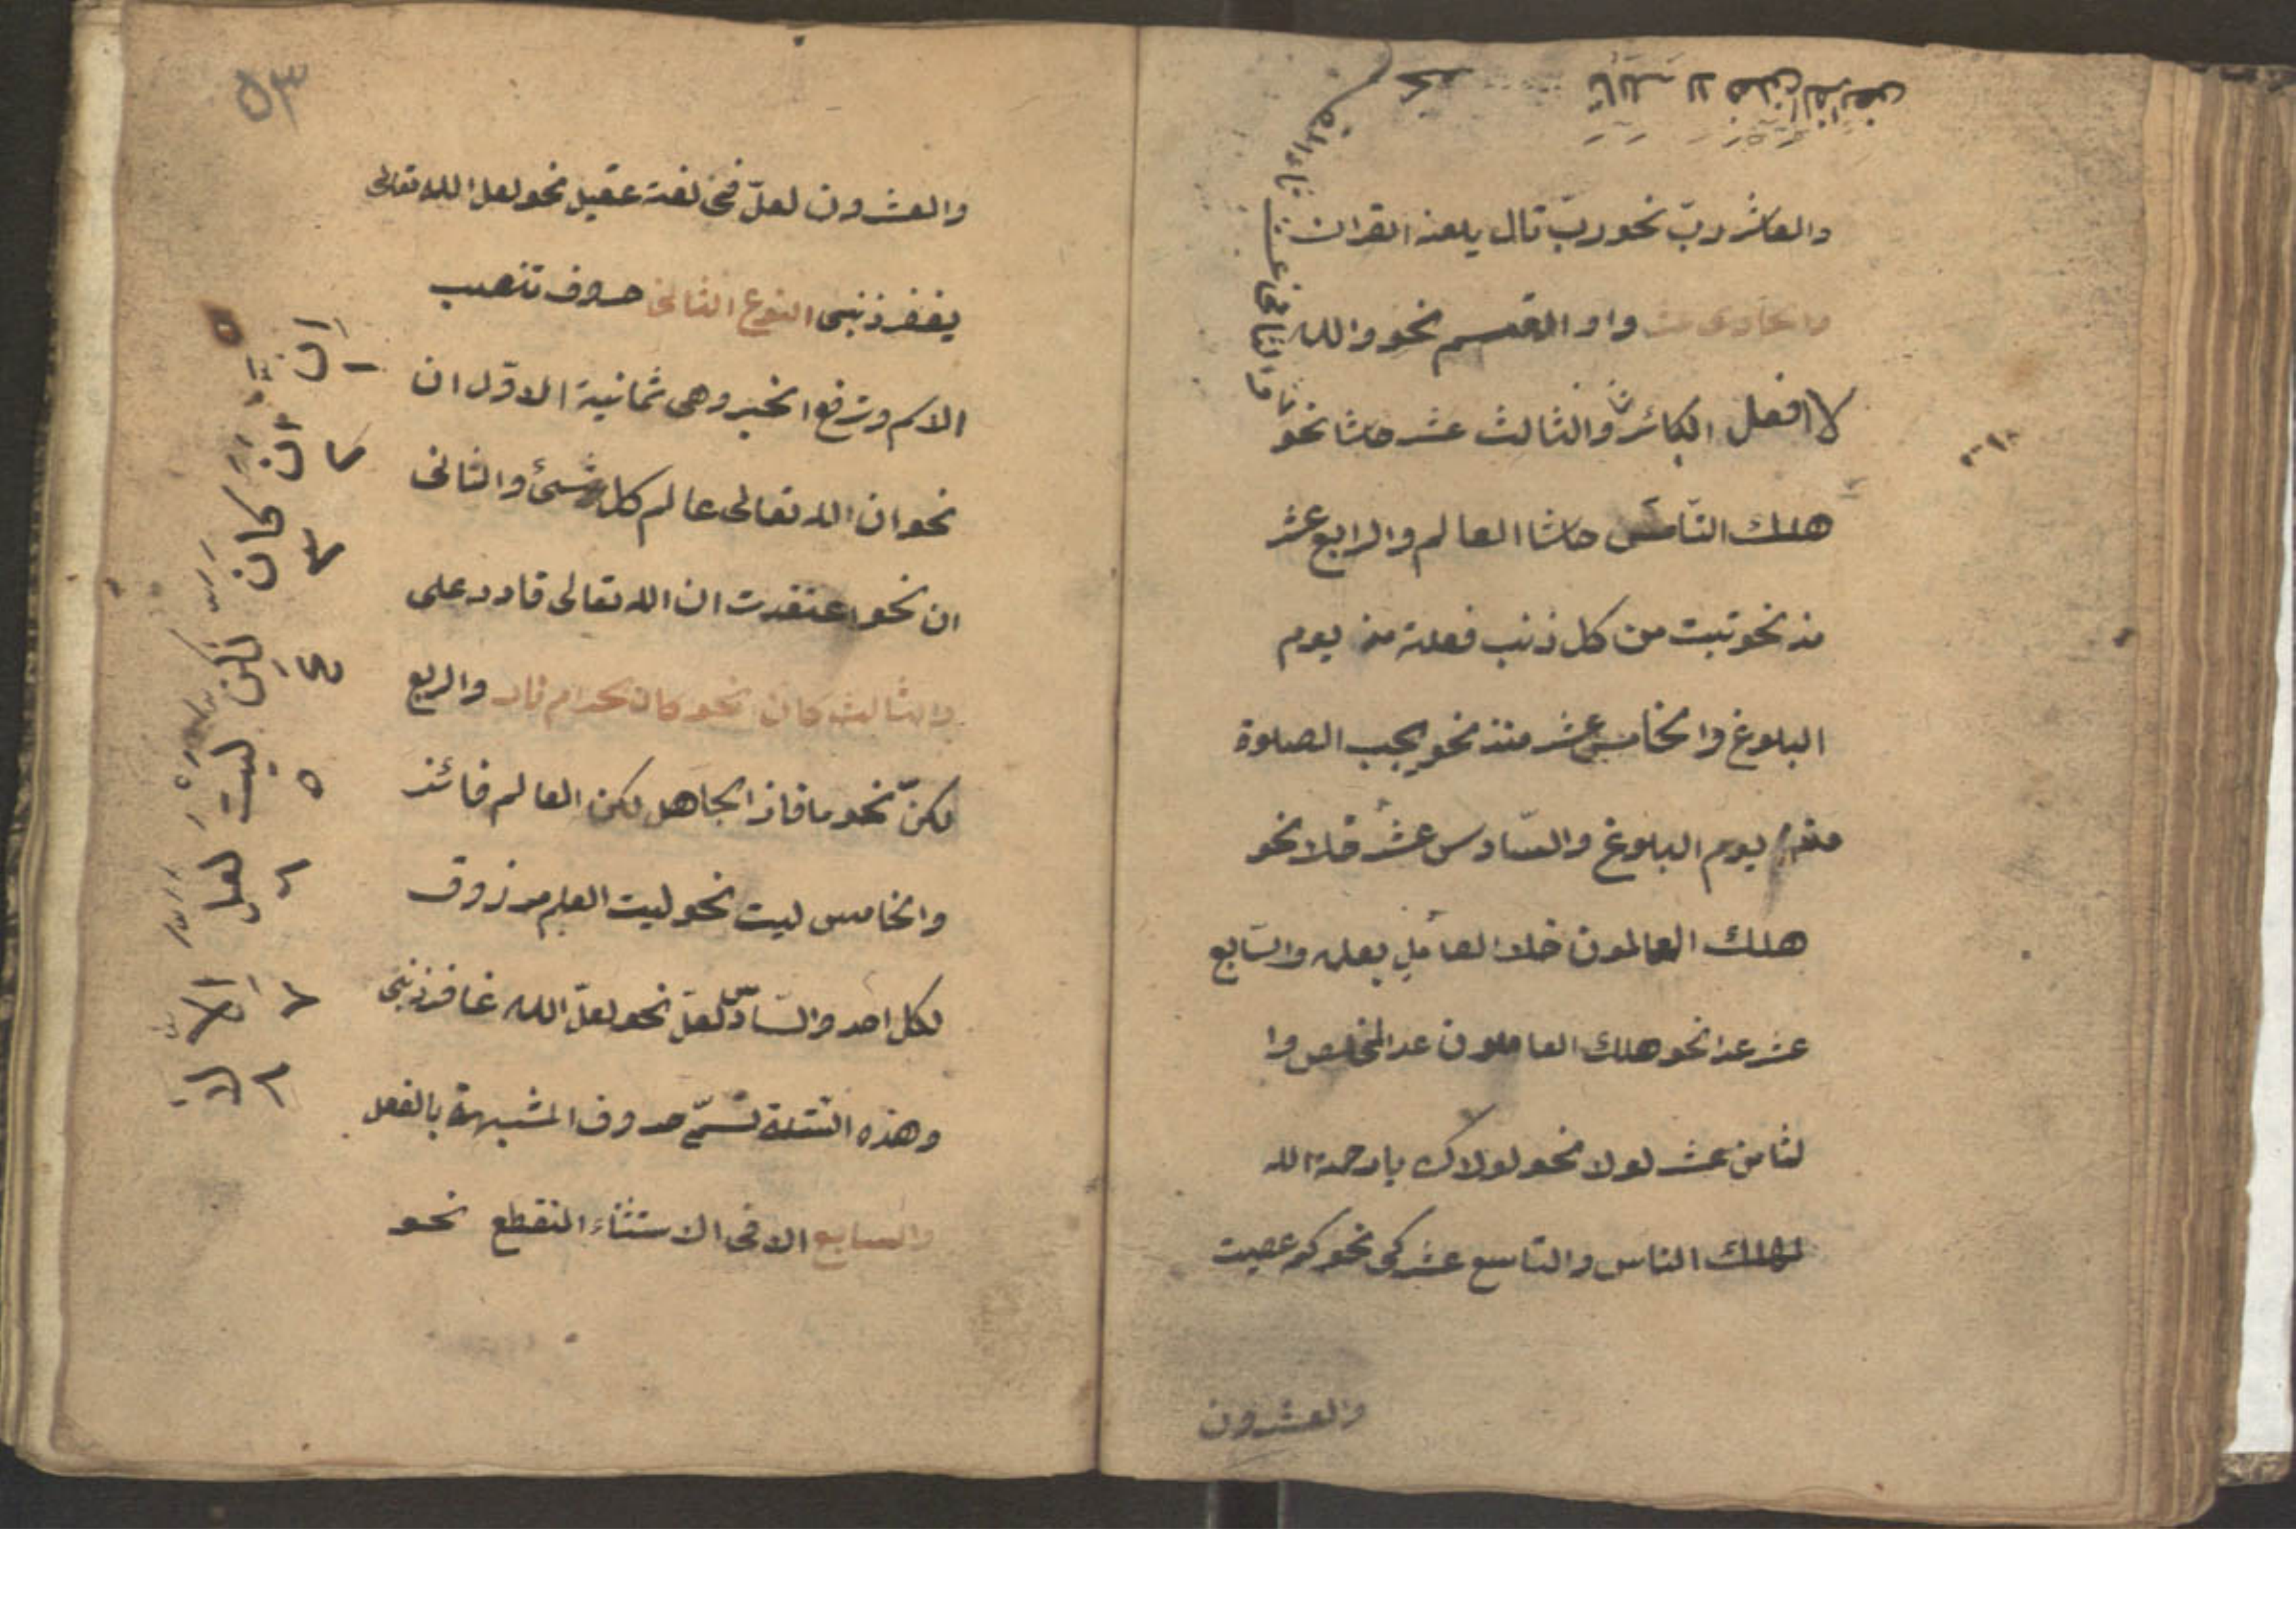 والعاشر ربّ نحو ربّ تال يلعنه القران
والحادى عشر واو القسم نحو والله
لا افعل الكبائر والثالث عشر حاشا نحو
هلك النّاس حاشا العالم والرابع عشر
مذ نحو تبت من كل ذنب فعلته مذ يوم
البلوغ والخامس عشر منذ نحو يجب الصلوة
منذ يوم البلوغ والسّادس عشر خلا نحو
هلك العالمون خلا العامل بعلمه والسّابع
عشر عدا نحو هلك العاملون عدا المخلص وا
لثامن عشر لولا نحو لولاك يا رحمة الله
لهلك الناس والتاسع عشر كى نحو كيم عصيت
والعشرون
والثانى عشر تاء القسم
نحو تالله لا فعلن الفرائض
٥٣
والعشرون لعلّ فى لغة عقيل نحو لعل الله تعالى
يغفر ذنبى النوع الثانى حروف تنصب
الاسم وترفع الخبر وهى ثمانية الاوّل ان
نحو ان الله تعالى عالم كل شىئ والثانى
ان نحو اعتقدت ان الله تعالى قادر على
والثالث كان نحو كان الحرام نار والربع
لكنّ نحو ما فاز الجاهل لكن العالم فائز
والخامس ليت نحو ليت العلم مرزوق
لكل احد والسّادس لعلّ نحو لعلّ الله غافر ذنبى
وهذه الستة تسمّى حروف المشبهة بالفعل
والسابع الا فى الاستثناء المنقطع نحو
اِن اَن كان لكن ليت لعل اِلا لا
١ ٢ ٣ ٤ ٥ ٦ ٧ ٨